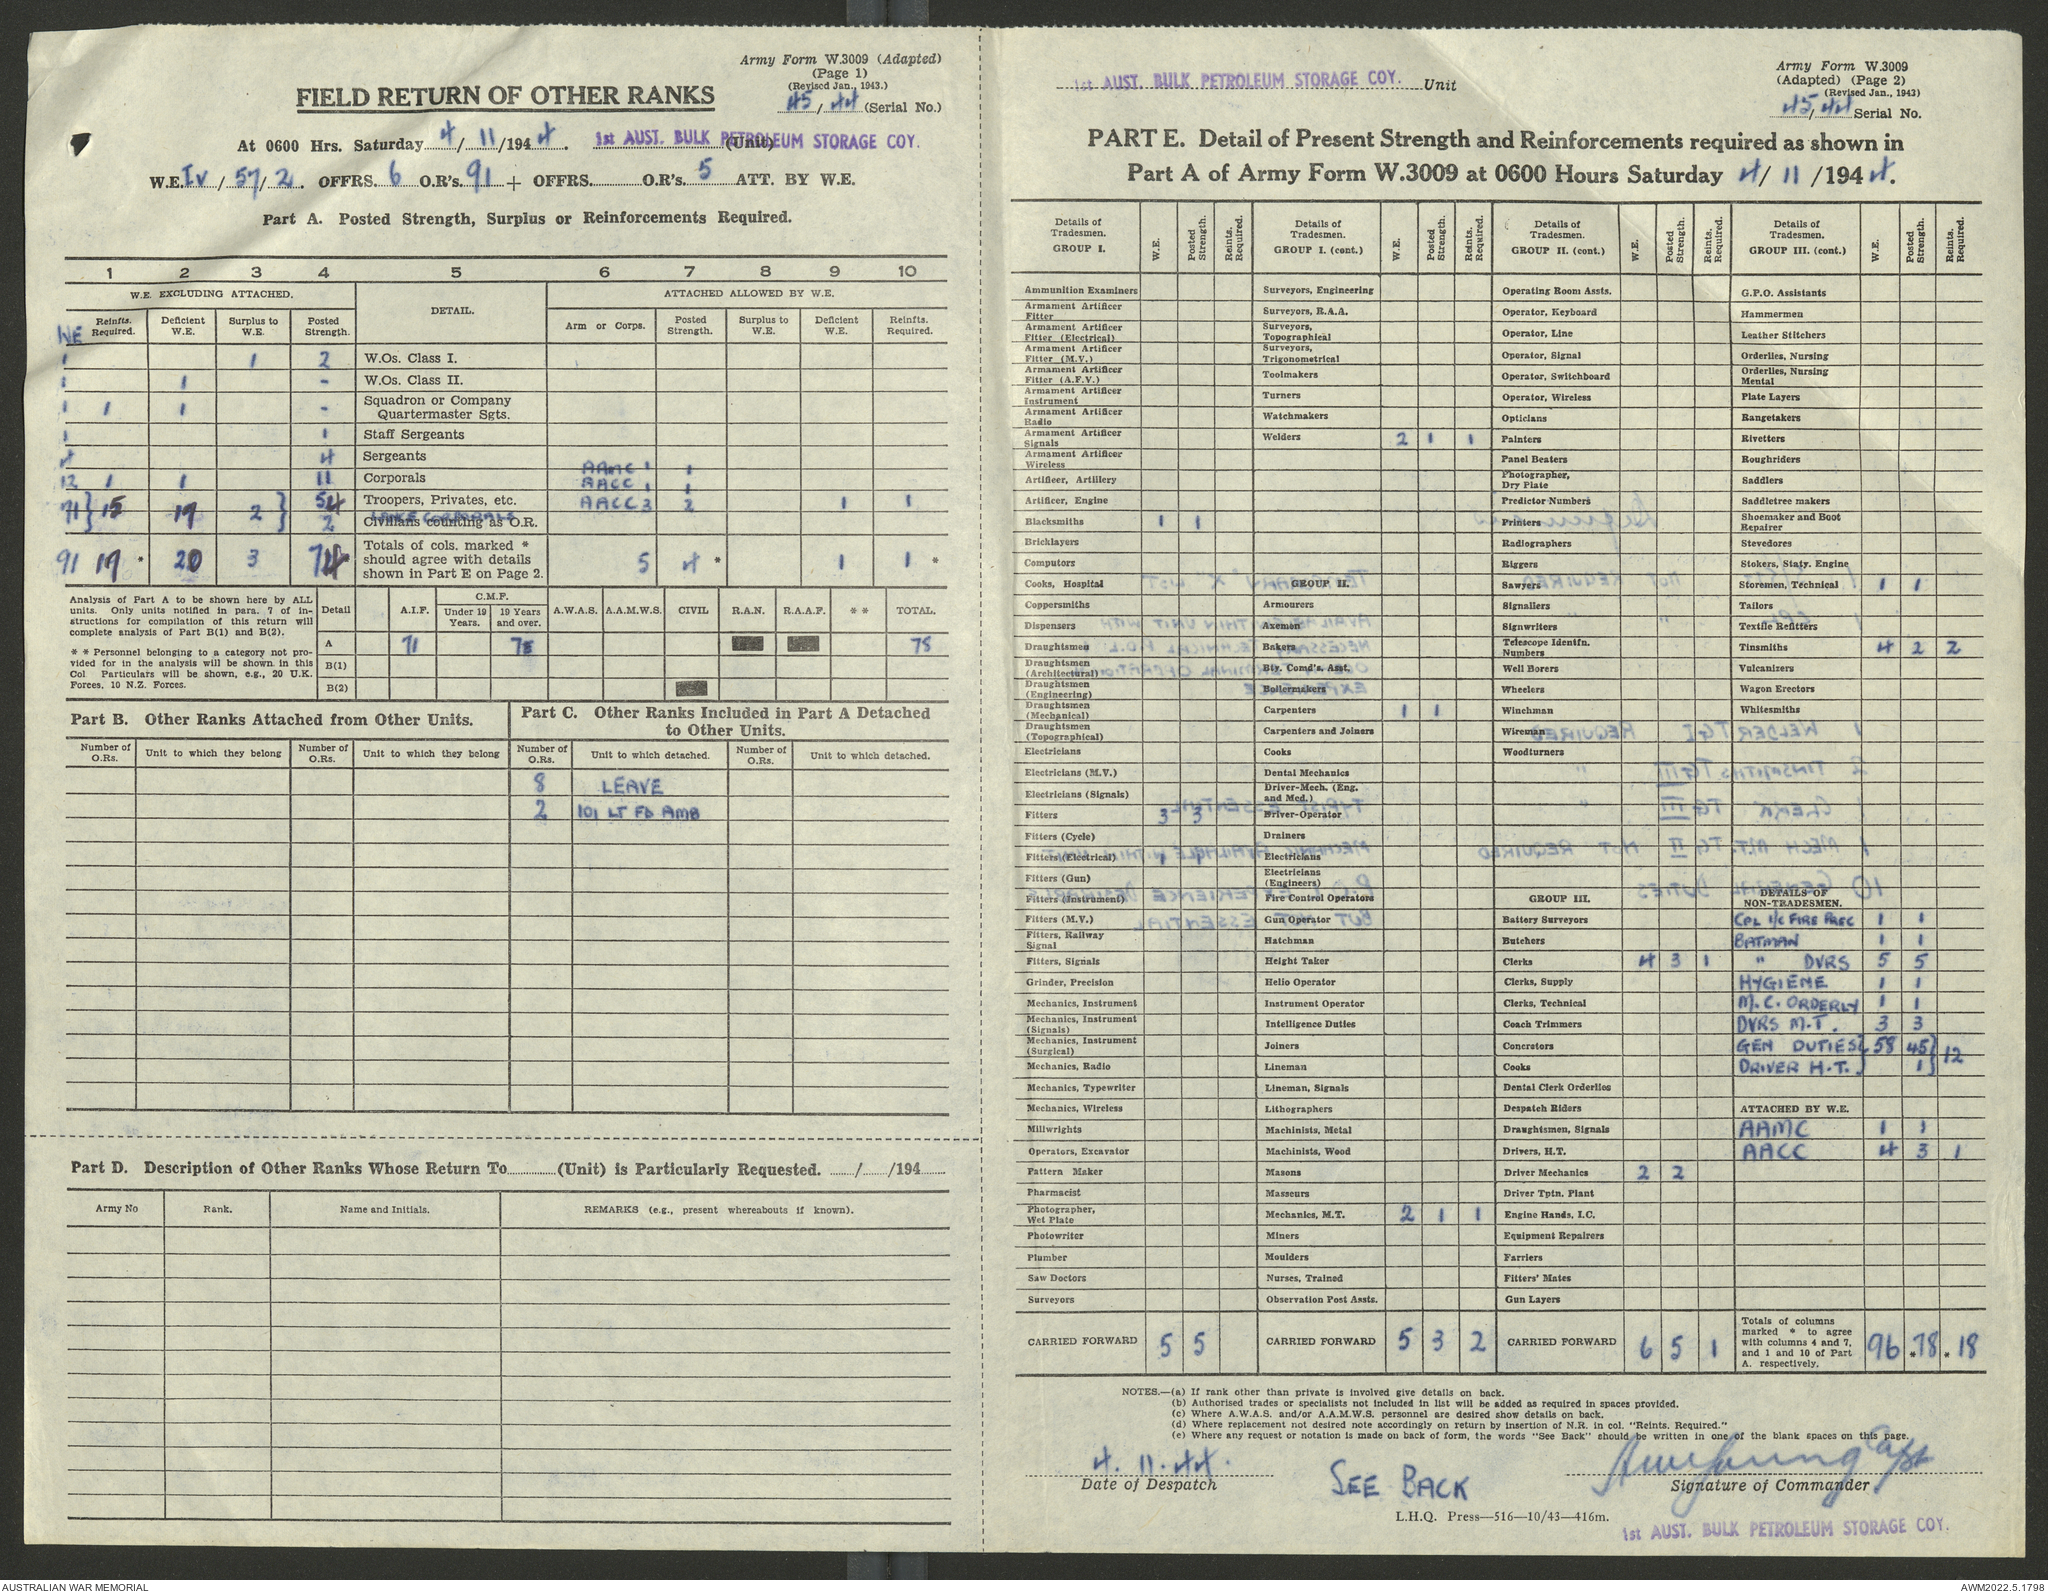 Army Form W.3009 (Adapted)
(Page 1)
(Revised Jan., 1943.)
45/44 (Serial No.)
FIELD RETURN OF OTHER RANKS
At 0600 Hrs. Saturday 4/11/1944. 1st AUST. BULK PETROLEUM STORAGE COY. (Unit)
W.E. IV/57/2. OFFRS. 6 O.R's. 91 + OFFRS. O.R's. 5 ATT. BY W.E.
Part A. Posted Strength, Surplus or Reinforcements Required.
1 2 3 4 5 6 7 8 9 10
W.E. EXCLUDING ATTACHED. DETAIL. ATTACHED ALLOWED BY W.E.
WE Reinfts. Required. Deficient W.E. Surplus to W.E. Posted Strength. Arm or Corps. Posted Strength. Surplus to W.E. Deficient W.E. Reinfts. Required.
1 1 2 W.Os. Class I.
1 1 - W.Os. Class II.
1 1 1 - Squadron or Company Quartermaster Sgts.
1 1 Staff Sergeants
4 4 Sergeants
AAMC 1 1
12 1 1 11 Corporals AACC 1 1
71 } 15 19 2 } 54 Troopers, Privates, etc. AACC 3 2 1 1
LANCE CORPORALS
2 Civilians counting as O.R.
91 * 20 3 * Totals of cols. marked * should agree with details shown in Part E on Page 2. 5 4 * 1 1 *
Analysis of Part A to be shown here by ALL units. Only units notified in para. 7 of instructions for compilation of this return will complete analysis of Part B(1) and B(2).
* * Personnel belonging to a category not provided for in the analysis will be shown in this Col Particulars will be shown, e.g., 20 U.K. Forces, 10 N.Z. Forces.
Detail A.I.F. C.M.F. Under 19 Years. 19 Years and over. A.W.A.S. A.A.M.W.S. CIVIL R.A.N. R.A.A.F. * * TOTAL.
A 71 78 78
B(1)
B(2)
Part B. Other Ranks Attached from Other Units.
Part C. Other Ranks Included in Part A Detached to Other Units.
Number of O.Rs. Unit to which they belong Number of O.Rs. Unit to which they belong Number of O.Rs. Unit to which detached. Number of O.Rs. Unit to which detached.
8 LEAVE
2 101 LT FD AMB
Part D. Description of Other Ranks Whose Return To (Unit) is Particularly Requested. / /194
Army No Rank. Name and Initials. REMARKS (e.g., present whereabouts if known).
1st AUST. BULK PETROLEUM STORAGE COY. Unit
Army Form W.3009
(Adapted) (Page 2)
(Revised Jan., 1943)
45/44 Serial No.
PART E. Detail of Present Strength and Reinforcements required as shown in
Part A of Army Form W.3009 at 0600 Hours Saturday 4/11/1944.
Details of Tradesmen. GROUP I. W.E. Posted Strength. Reints. Required.
Ammunition Examiners
Armament Artificer Fitter
Armament Artificer Fitter (Electrical)
Armament Artificer Fitter (M.V.)
Armament Artificer Fitter (A.F.V.)
Armament Artificer Instrument
Armament Artificer Radio
Armament Artificer Signals
Armament Artificer Wireless
Artificer, Artillery
Artificer, Engine
Blacksmiths 1 1
Bricklayers
Computors
Cooks, Hospital
Coppersmiths
Dispensers
Draughtsmen
Draughtsmen (Architectural)
Draughtsmen (Engineering)
Draughtsmen (Mechanical)
Draughtsmen (Topographical)
Electricians
Electricians (M.V.)
Electricians (Signals)
Fitters 3 3
Fitters (Cycle)
Fitters (Electrical) 1 1
Fitters (Gun)
Fitters (Instrument)
Fitters (M.V.)
Fitters, Railway Signal
Fitters, Signals
Grinder, Precision
Mechanics, Instrument
Mechanics, Instrument (Signals)
Mechanics, Instrument (Surgical)
Mechanics, Radio
Mechanics, Typewriter
Mechanics, Wireless
Millwrights
Operators, Excavator
Pattern Maker
Pharmacist
Photographer, Wet Plate
Photowriter
Plumber
Saw Doctors
Surveyors
CARRIED FORWARD 5 5
Details of Tradesmen. GROUP I. (cont.) W.E. Posted Strength. Reints. Required.
Surveyors, Engineering
Surveyors, R.A.A.
Surveyors, Topographical
Surveyors, Trigonometrical
Toolmakers
Turners
Watchmakers
Welders 2 1 1
GROUP II.
Armourers
Axemen
Bakers
Bty. Comd's. Asst.
Boilermakers
Carpenters 1 1
Carpenters and Joiners
Cooks
Dental Mechanics
Driver-Mech. (Eng. and Med.)
Driver-Operator
Drainers
Electricians
Electricians (Engineers)
Fire Control Operators
Gun Operator
Hatchman
Height Taker
Helio Operator
Instrument Operator
Intelligence Duties
Joiners
Lineman
Lineman, Signals
Lithographers
Machinists, Metal
Machinists, Wood
Masons
Masseurs
Mechanics, M.T. 2 1 1
Miners
Moulders
Nurses, Trained
Observation Post Assts.
CARRIED FORWARD 5 3 2
Details of Tradesmen. GROUP II. (cont.) W.E. Posted Strength. Reints. Required.
Operating Room Assts.
Operator, Keyboard
Operator, Line
Operator, Signal
Operator, Switchboard
Operator, Wireless
Opticians
Painters
Panel Beaters
Photographer, Dry Plate
Predictor Numbers
Printers
Radiographers
Riggers
Sawyers
Signallers
Signwriters
Telescope Identfn. Numbers
Well Borers
Wheelers
Winchman
Wireman
Woodturners
GROUP III.
Battery Surveyors
Butchers
Clerks 4 3 1
Clerks, Supply
Clerks, Technical
Coach Trimmers
Concretors
Cooks
Dental Clerk Orderlies
Despatch Riders
Draughtsmen, Signals
Drivers, H.T.
Driver Mechanics 2 2
Driver Tptn. Plant
Engine Hands, I.C.
Equipment Repairers
Farriers
Fitters' Mates
Gun Layers
CARRIED FORWARD 6 5 1
Details of Tradesmen. GROUP III. (cont.) W.E. Posted Strength. Reints. Required.
G.P.O. Assistants
Hammermen
Leather Stitchers
Orderlies, Nursing
Orderlies, Nursing Mental
Plate Layers
Rangetakers
Rivetters
Roughriders
Saddlers
Saddletree makers
Shoemaker and Boot Repairer
Stevedores
Stokers, Staty. Engine
Storemen, Technical 1 1
Tailors
Textile Refitters
Tinsmiths 4 2 2
Vulcanizers
Wagon Erectors
Whitesmiths
DETAILS OF NON-TRADESMEN.
CPL I/C FIRE PREC 1 1
BATMAN 1 1
" DVRS 5 5
HYGIENE 1 1
M.C. ORDERLY 1 1
DVRS M.T. 3 3
GEN DUTIES } 58 45 } 12
DRIVER H.T. } 1 }
ATTACHED BY W.E.
AAMC 1 1
AACC 4 3 1
Totals of columns marked * to agree with columns 4 and 7, and 1 and 10 of Part A. respectively. 96 * 78 * 18
NOTES.—(a) If rank other than private is involved give details on back.
(b) Authorised trades or specialists not included in list will be added as required in spaces provided.
(c) Where A.W.A.S. and/or A.A.M.W.S. personnel are desired show details on back.
(d) Where replacement not desired note accordingly on return by insertion of N.R. in col. "Reints. Required."
(e) Where any request or notation is made on back of form, the words "See Back" should be written in one of the blank spaces on this page.
4.11.44.
Date of Despatch
SEE BACK
Capt
Signature of Commander
L.H.Q. Press—516—10/43—416m.
1st AUST. BULK PETROLEUM STORAGE COY.
AUSTRALIAN WAR MEMORIAL
AWM2022.5.1798